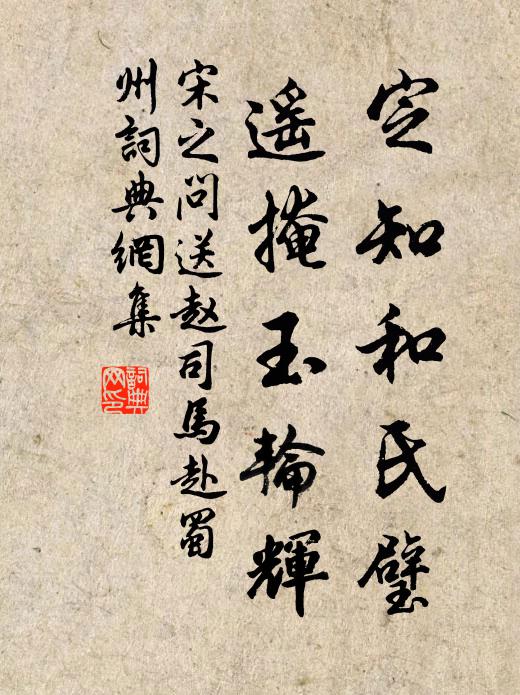 定知和氏璧
遥掩玉輪輝
宋之问送赵司馬赴蜀
州詞典網集
詞典
网印